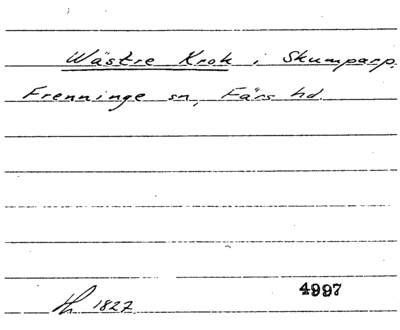 Wästre Krok i Skumparp.
Frenninge sn, Färs hd.
4997
1827